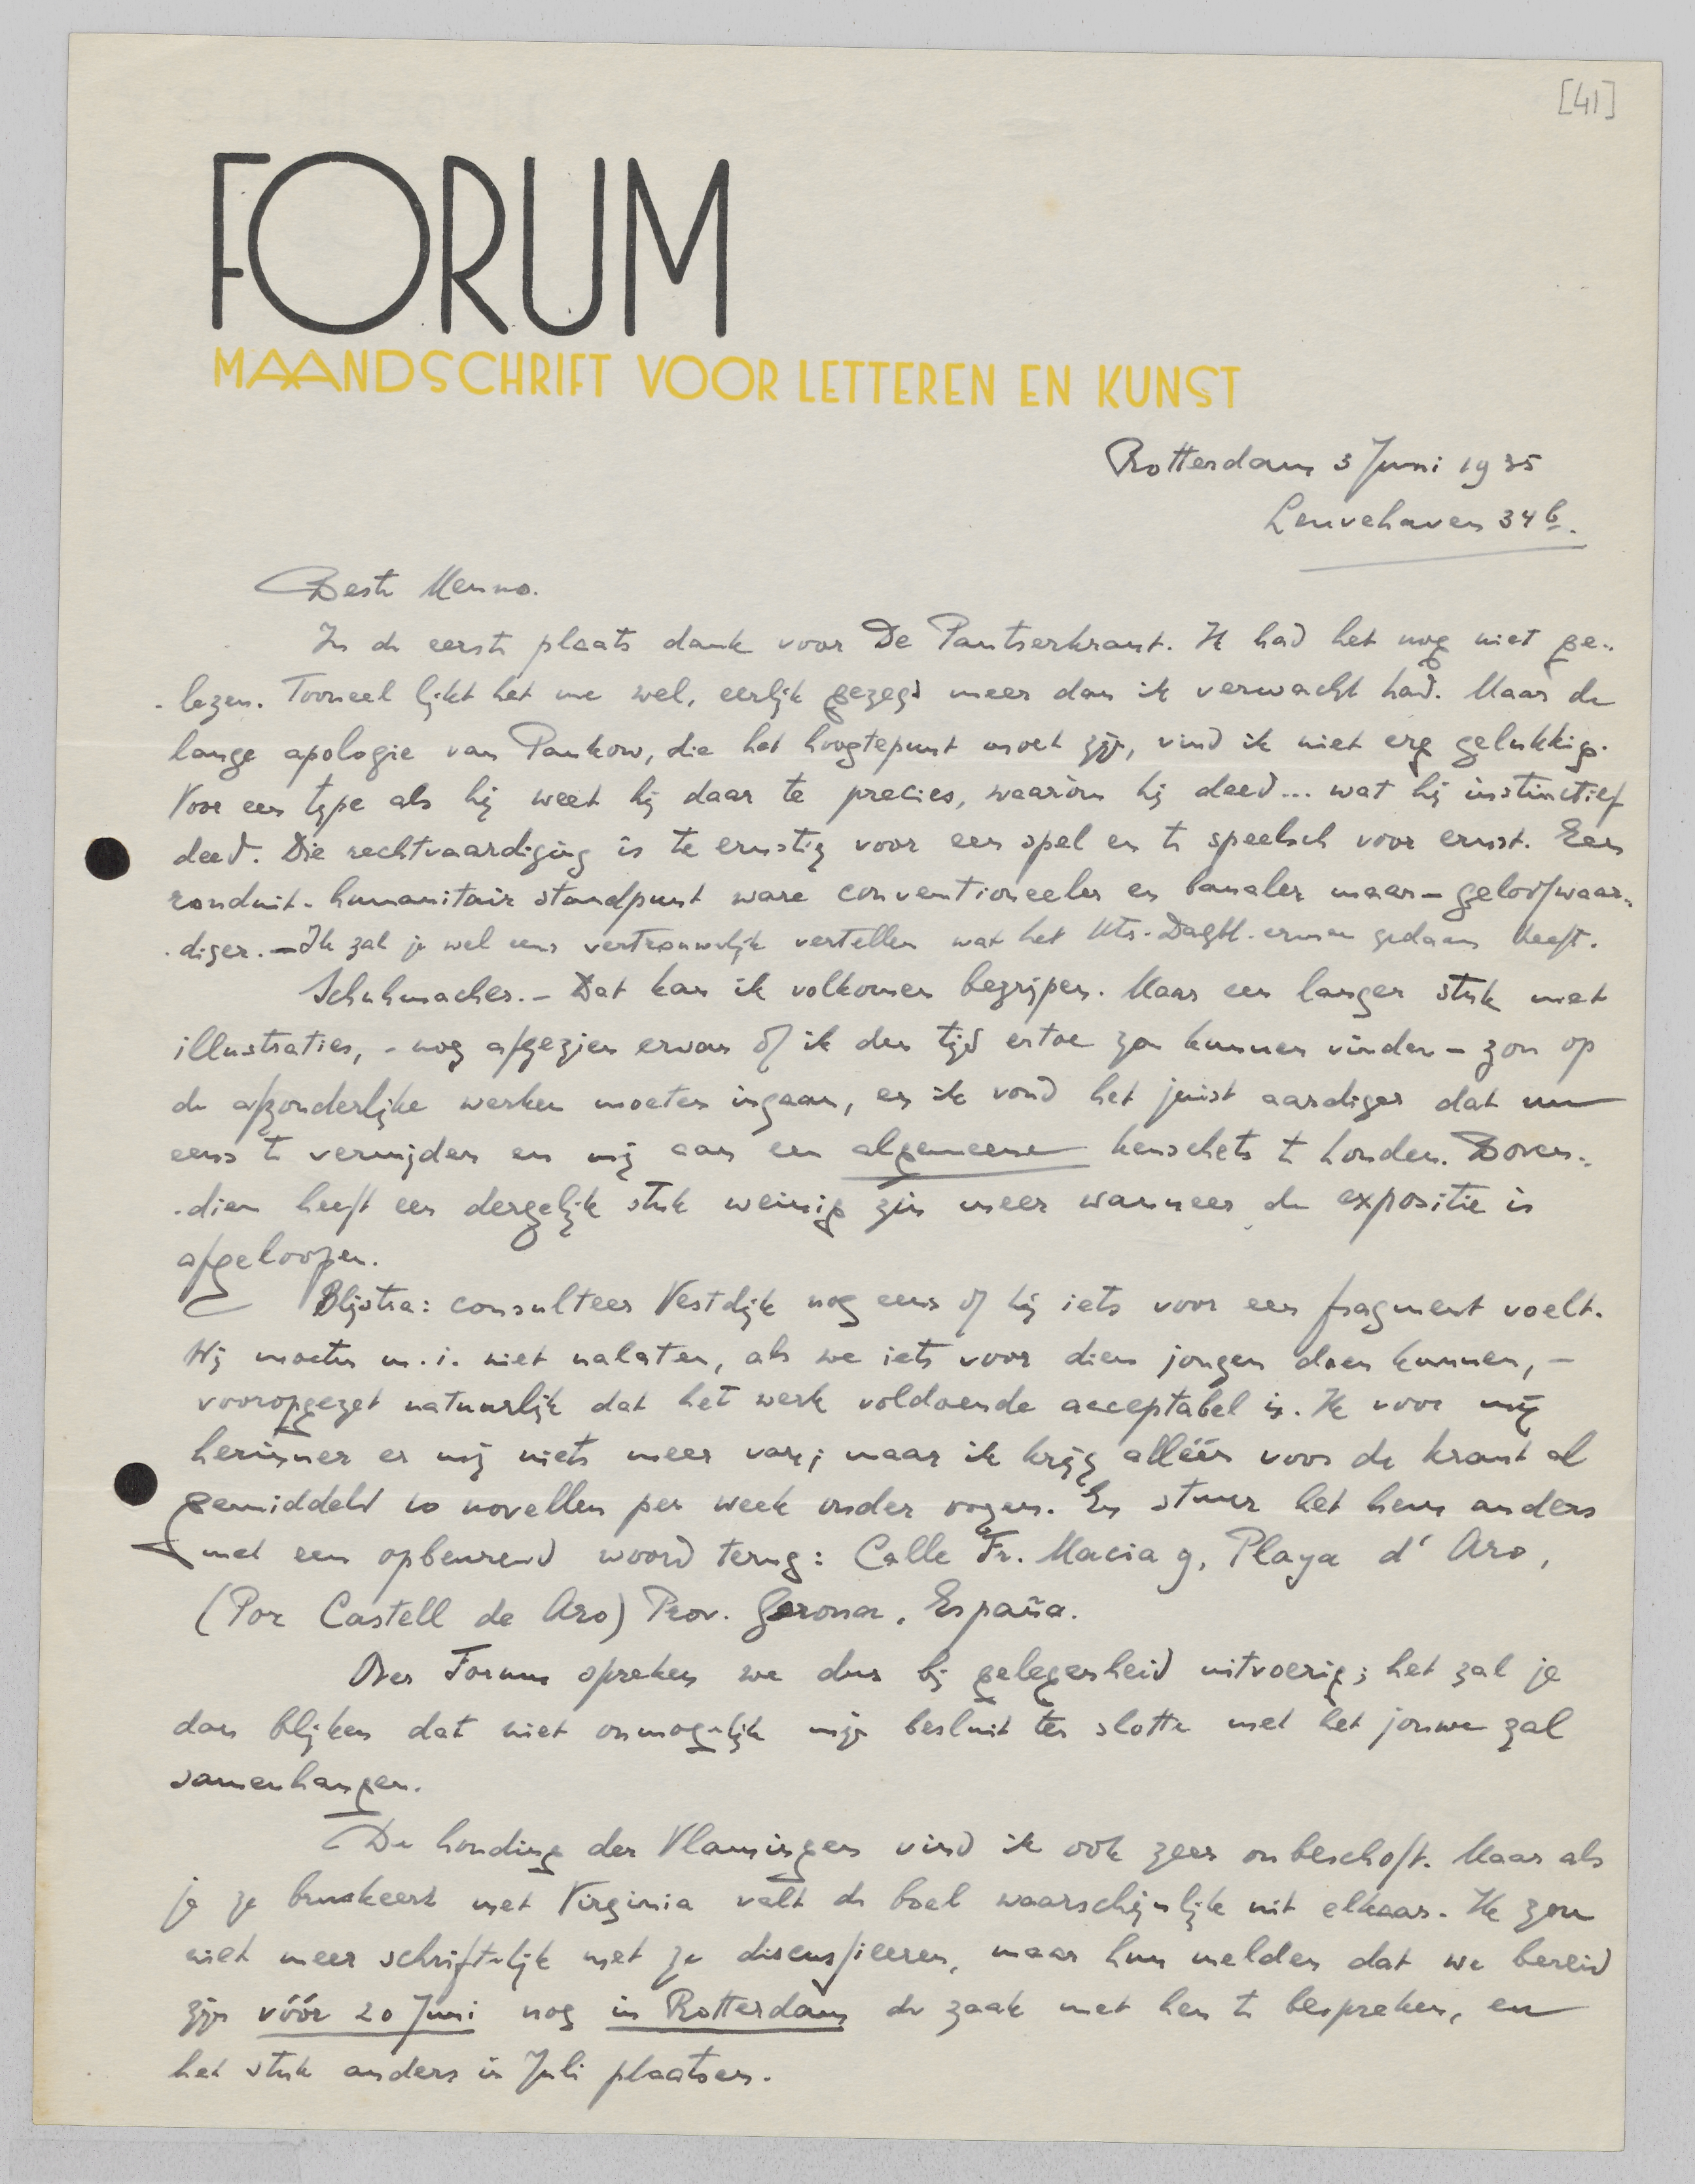 [41]
FORUM
MAANDSCHRIFT VOOR LETTEREN EN KUNST
Rotterdam 3 Juni 1935
Leuvehaven 34b.
Beste Menno.
In de eerste plaats dank voor De Pantserkrant. Ik had het nog niet ge-
-lezen. Tooneel lijkt het me wel, eerlijk gezegd meer dan ik verwacht had. Maar de
lange apologie van Pankow, die het hoogtepunt moet zijn, vind ik niet erg gelukkig.
Voor een type als hij weet hij daar te precies, waaròm hij deed... wat hij instinctief
deed. Die rechtvaardiging is te ernstig voor een spel en te speelsch voor ernst. Een
ronduit-humanitair standpunt ware conventioneeler en banaler maar – geloofwaar-
-diger. – Ik zal je wel eens vertrouwelijk vertellen wat het Utr. Dagbl. ermee gedaan heeft.
Schuhmacher. – Dat kan ik volkomen begrijpen. Maar een langer stuk met
illustraties, – nog afgezien ervan of ik den tijd ertoe zou kunnen vinden – zou op
de afzonderlijke werken moeten ingaan, en ik vond het juist aardiger dat nu
eens te vermijden en mij aan een algemeene kenschets te houden. Boven-
-dien heeft een dergelijk stuk weinig zin meer wanneer de expositie is
afgeloopen.
Blijstra: consulteer Vestdijk nog eens of hij iets voor een fragment voelt.
Wij moeten m.i. niet nalaten, als we iets voor dien jongen doen kunnen, –
vooropgezet natuurlijk dat het werk voldoende acceptabel is. Ik voor mij
herinner er mij niets meer van; maar ik krijg alléén voor de krant al
gemiddeld 10 novellen per week onder oogen. En stuur het hem anders
met een opbeurend woord terug: Calle Fr. Macia 9, Playa d' Aro,
(Por Castell de Aro) Prov. Gerona, España.
Over Forum spreken we dus bij gelegenheid uitvoerig; het zal je
dan blijken dat niet onmogelijk mijn besluit ten slotte met het jouwe zal
samenhangen.
De houding der Vlamingen vind ik ook zeer onbeschoft. Maar als
je ze bruskeert met Virginia valt de boel waarschijnlijk uit elkaar. Ik zou
niet meer schriftelijk met ze discussieeren, maar hun melden dat we bereid
zijn vóór 20 Juni nog in Rotterdam de zaak met hen te bespreken, en
het stuk anders in Juli plaatsen.